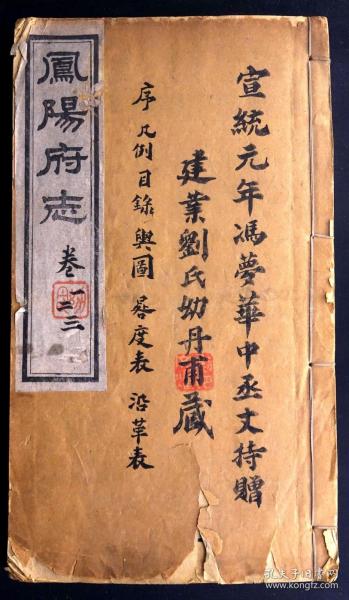 宣統元年馮夢華中丞丈持贈
建業劉氏幼丹甫藏
序 凡例 目錄 輿圖 晷度表 沿革表
鳳陽府志
卷一二三
孔夫子旧书网